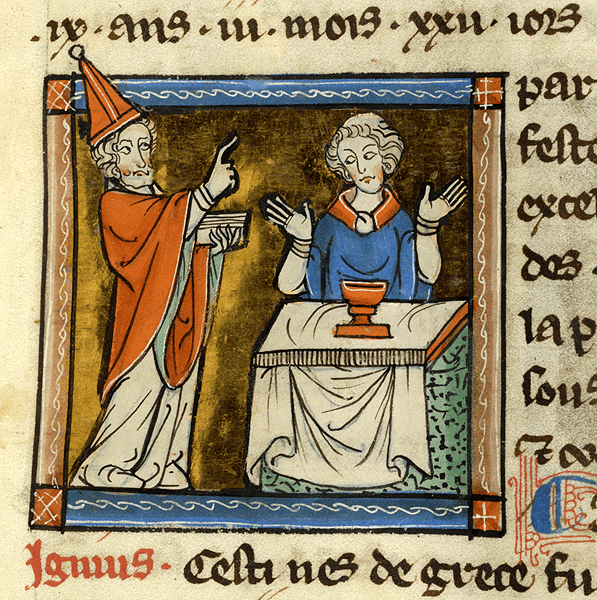 .ix. ans . iii . mois . xxii . iors
par
feste
excel
des .
la p
sous
Ignius . Cesti nes de grece fu